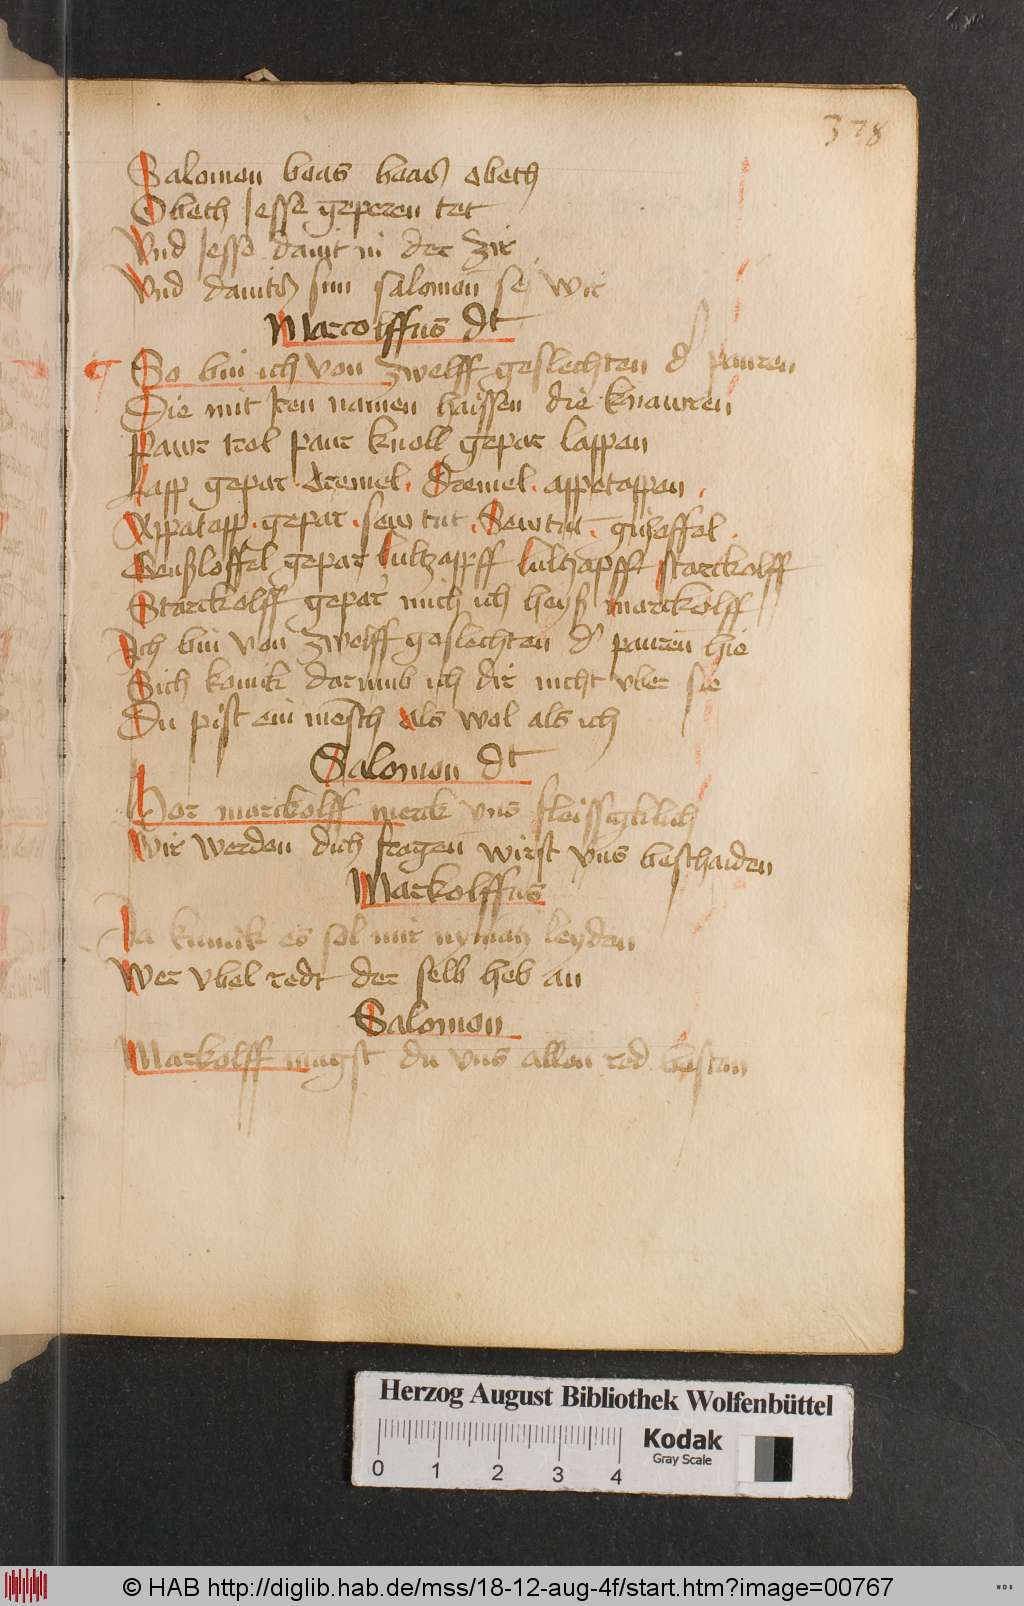 378
Salomon boas baas obeth
Obeth Jesse geperen tet
Vnd Jesse dauit in der zir
Vnd dauitz sun salomon se wir
Marcolffus dt
So bin ich von zwelff geslechten d' pauren
Die mit Iren namen haissen die knauren
Pawr trol paur knoll gepar lappen
Lapp gepar . dremel . Dremel . appetappen .
Appatapp . gepar . sew tut . Sewtut .
Genßloffel gepar lultzapff lultzapff starckolff
Starckolff gepar mich ich heyß marckolff
Ich bin von zwelff geslechten d' pauren hie
Sich konik darumb ich dir nicht vber sie
Du pist ein mensch als wol als ich
Salomon dt
Hor marckolff merck vns fleissigklich
Wir werden dich fragen wirst vns beschaiden
Markolffus
Ja kunik es sol mir nymantz leyden
Wer vbel redt der selb heb an
Salomon
Markolff mugst du vns allen red bestan
Herzog August Bibliothek Wolfenbüttel
Kodak
Gray Scale
0 1 2 3 4
© HAB http://diglib.hab.de/mss/18-12-aug-4f/start.htm?image=00767